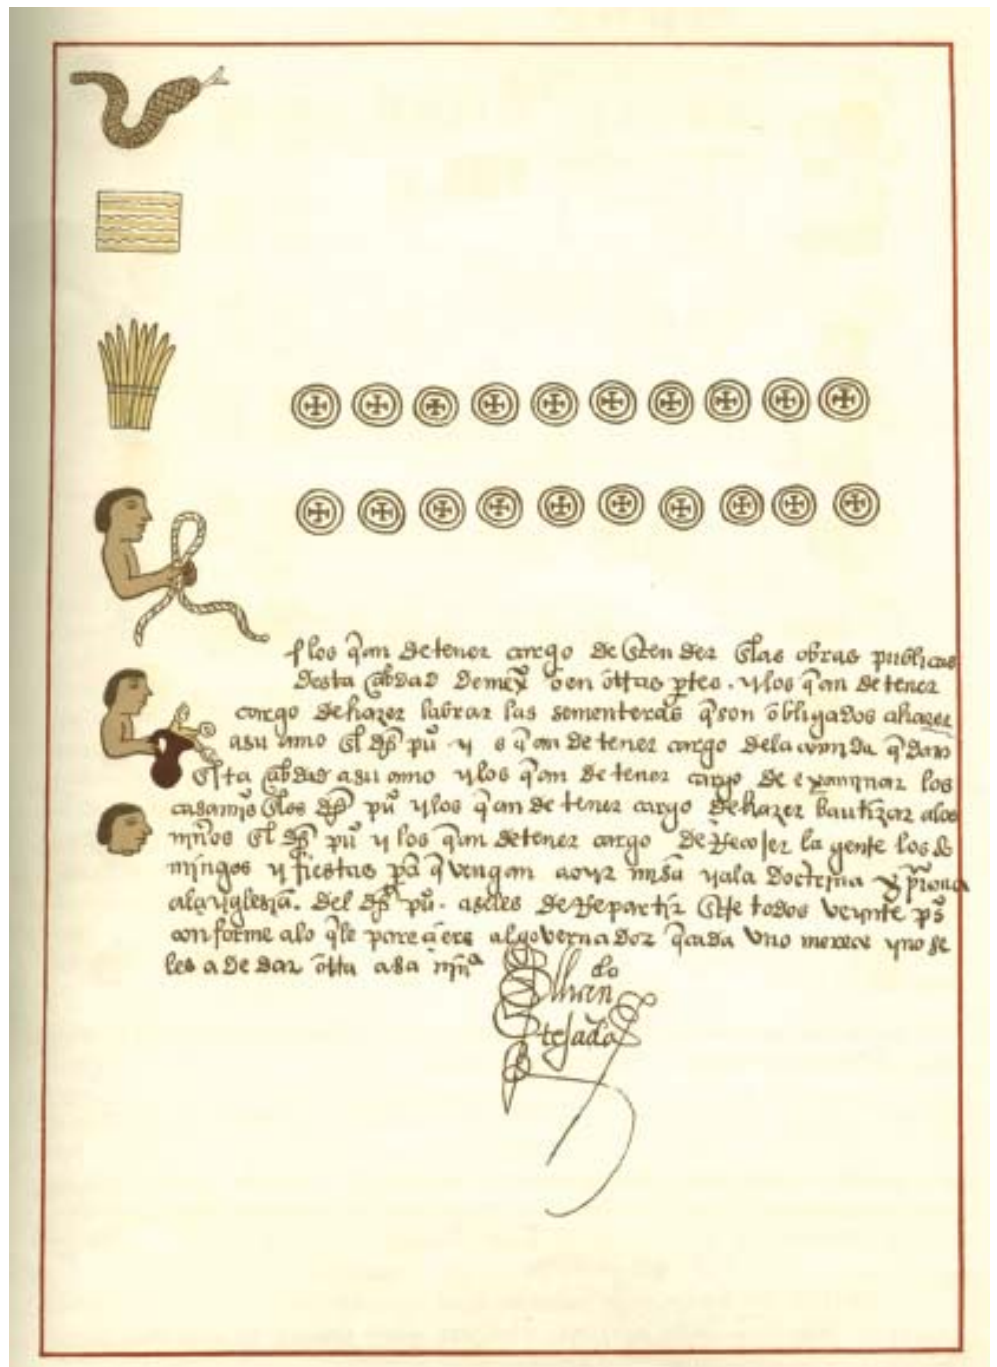 los q̃ an de tener cargo de entender en las obras publicas
desta çibdad de mex^co o en otras p̃tes . y los q̃ an de tener
cargo de hazer labrar las sementeras q̃ son obligados a hazer
a su amo en el d̃ho pũ y q̃ an de tener cargo de la comida q̃ dan
en esta çibdad a su amo y los q̃ an de tener cargo de examinar los
casamj^os en el d̃ho pũ y los q̃ an de tener cargo de hazer bautizar a los
njños en el d̃ho pũ y los q̃ an de tener cargo de Recojer la gente los do
mjngos y fiestas p̃a q̃ vengan a oyr mjsa y a la doctrina
a la yglesia . del d̃ho pũ . aseles de Repartir este todos veynte p̃s
conforme a lo q̃ le pareçiere al governador q̃ cada vno mereçe y no se
les a de dar en otra m̃n^a
tejada